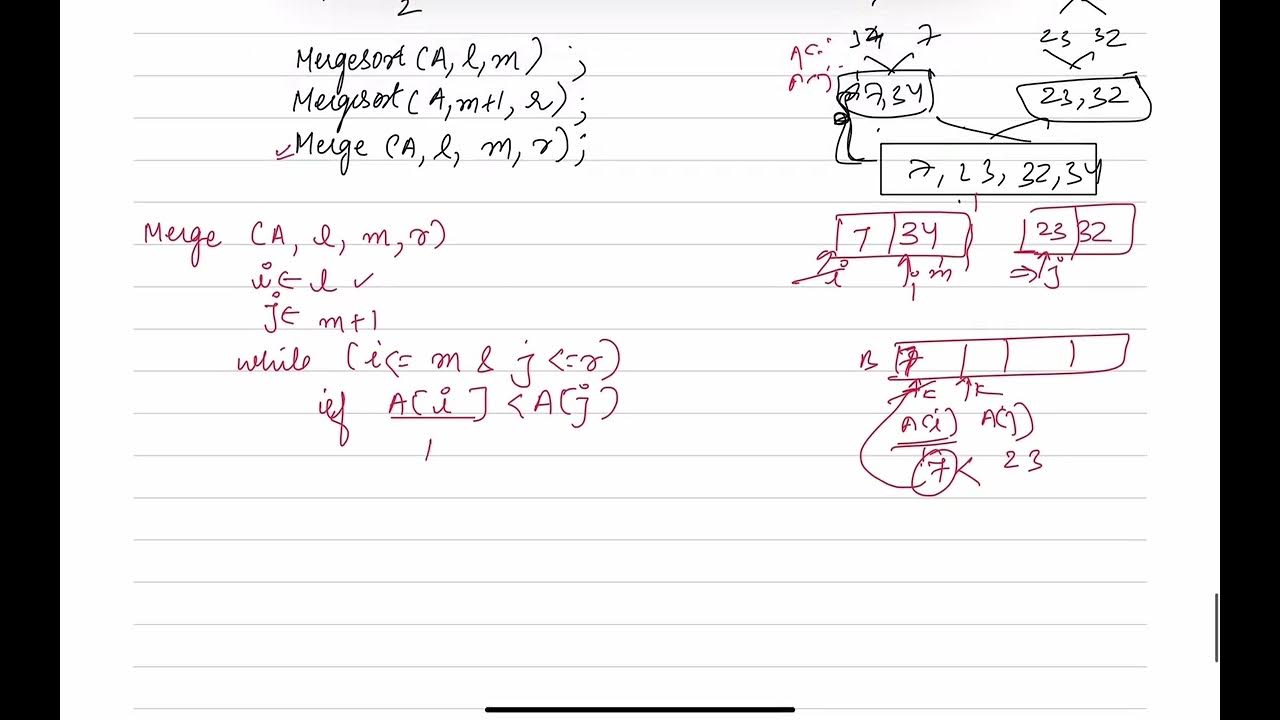 2
Mergesort (A, l, m) ;
Mergesort (A, m+1, r) ;
Merge (A, l, m, r);
34 7 23 32
A[i]
A[j]
7,34 23,32
7, 23, 32, 34
Merge (A, l, m, r)
i ← l ✓
j ← m+1
while (i <= m & j <= r)
if A[i] < A[j)
7 34 23 32
i i m ⇒ j
B 7
k k
A(i) A(j)
7 < 23